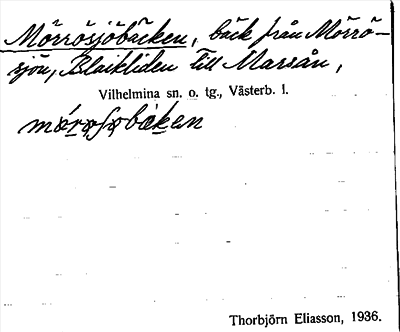 Mörrösjöbäcken, bäck från Mörrö-
sjön, Blaikliden till Marsån,
Vilhelmina sn. o. tg., Västerb. l.
Thorbjörn Eliasson, 1936.